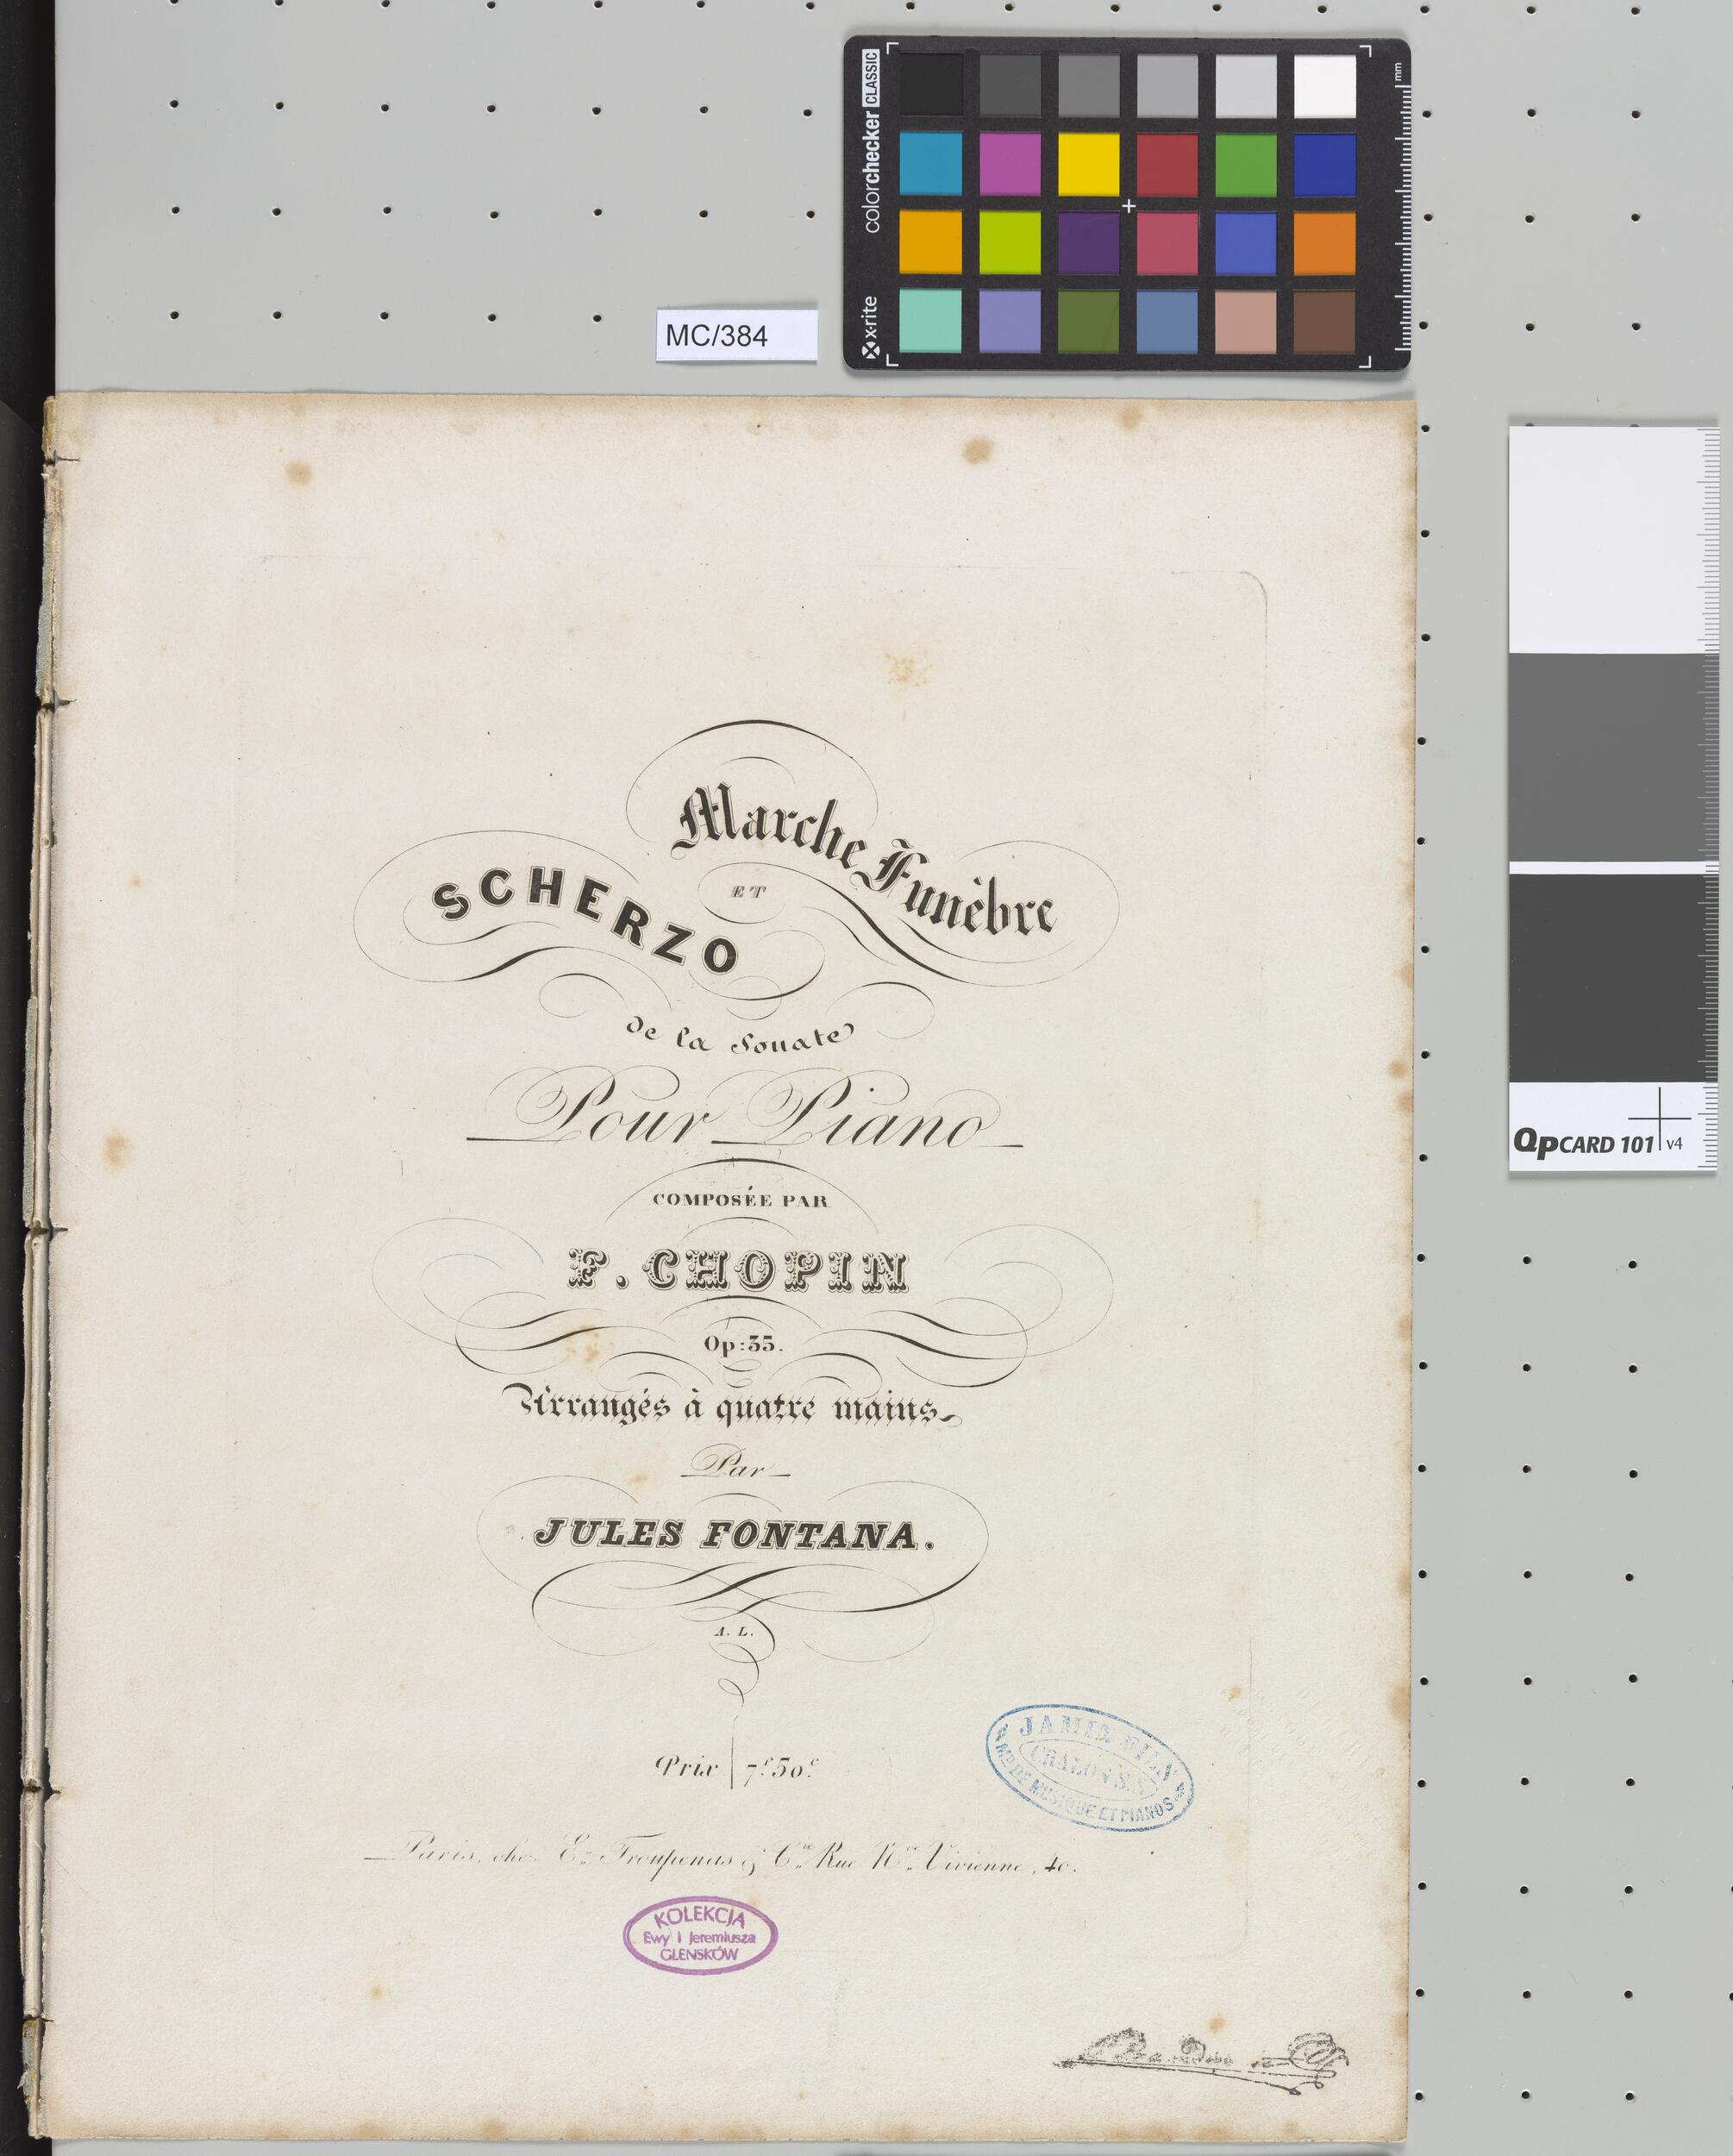 colorchecker CLASSIC
x-rite
mm
MC/384
SCHERZO
ET
Marche Funèbre
de la Sonate
Pour Piano
COMPOSÉE PAR
F. CHOPIN
Op: 35.
Arrangés à quatre mains
Par
JULES FONTANA.
A. L.
Prix 7f 50c
Paris, chez E. Troupenas & Cie Rue Nve Vivienne, 40.
JAMIN FILS
CHALON S.S
Md DE MUSIQUE ET PIANOS
KOLEKCJA
Ewy i Jeremiusza
GLENSKÓW
QPCARD 101 v4